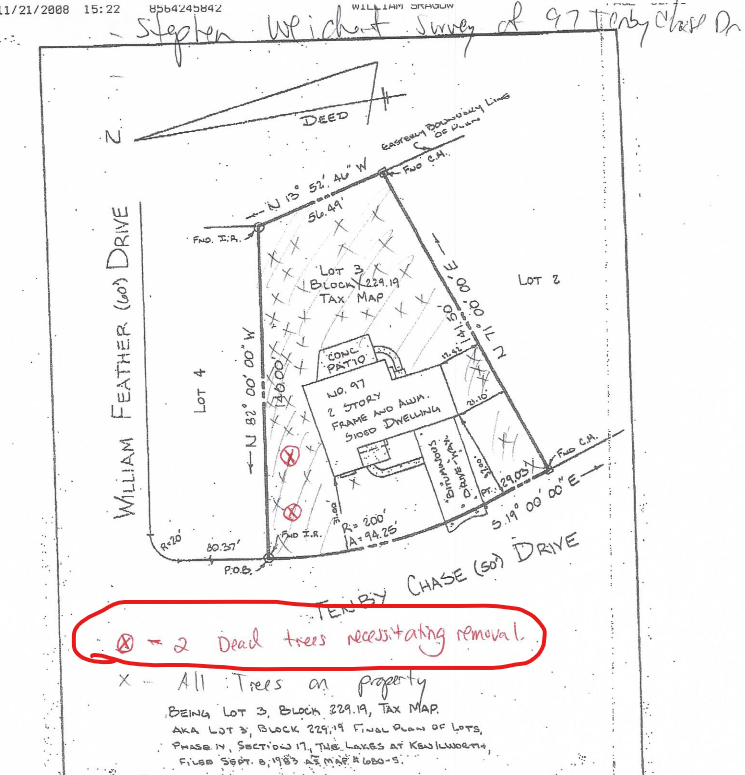 11/21/2008 15:22 8564245842 WILLIAM SRAGOW
Stephen Weichert Survey of 97 Tenby Chase Dr
N
DEED
EASTERLY BOUNDARY LINE
OF PLAN
FND C.M.
N 13° 52' 46" W
56.49'
FND. I.R.
LOT 3
BLOCK 229.19
TAX MAP
LOT 2
N 71° 00' 00" E
141.50'
WILLIAM FEATHER (60') DRIVE
LOT 4
N 82° 00' 00" W
140.00'
CONC.
PATIO
NO. 97
2 STORY
FRAME AND ALUM.
SIDED DWELLING
BITUMINOUS
DRIVEWAY
FND C.M.
PT.
29.03'
S 19° 00' 00" E
R=200'
A=94.25'
FND I.R.
R=20'
80.37'
P.O.B.
TENBY CHASE (50') DRIVE
X - 2 Dead trees necessitating removal.
X - All Trees on property
BEING LOT 3, BLOCK 229.19, TAX MAP.
AKA LOT 3, BLOCK 229.19 FINAL PLAN OF LOTS,
PHASE IV, SECTION 17, THE LAKES AT KENILWORTH,
FILED SEPT. 8, 1983 AS MAP # 680-5.